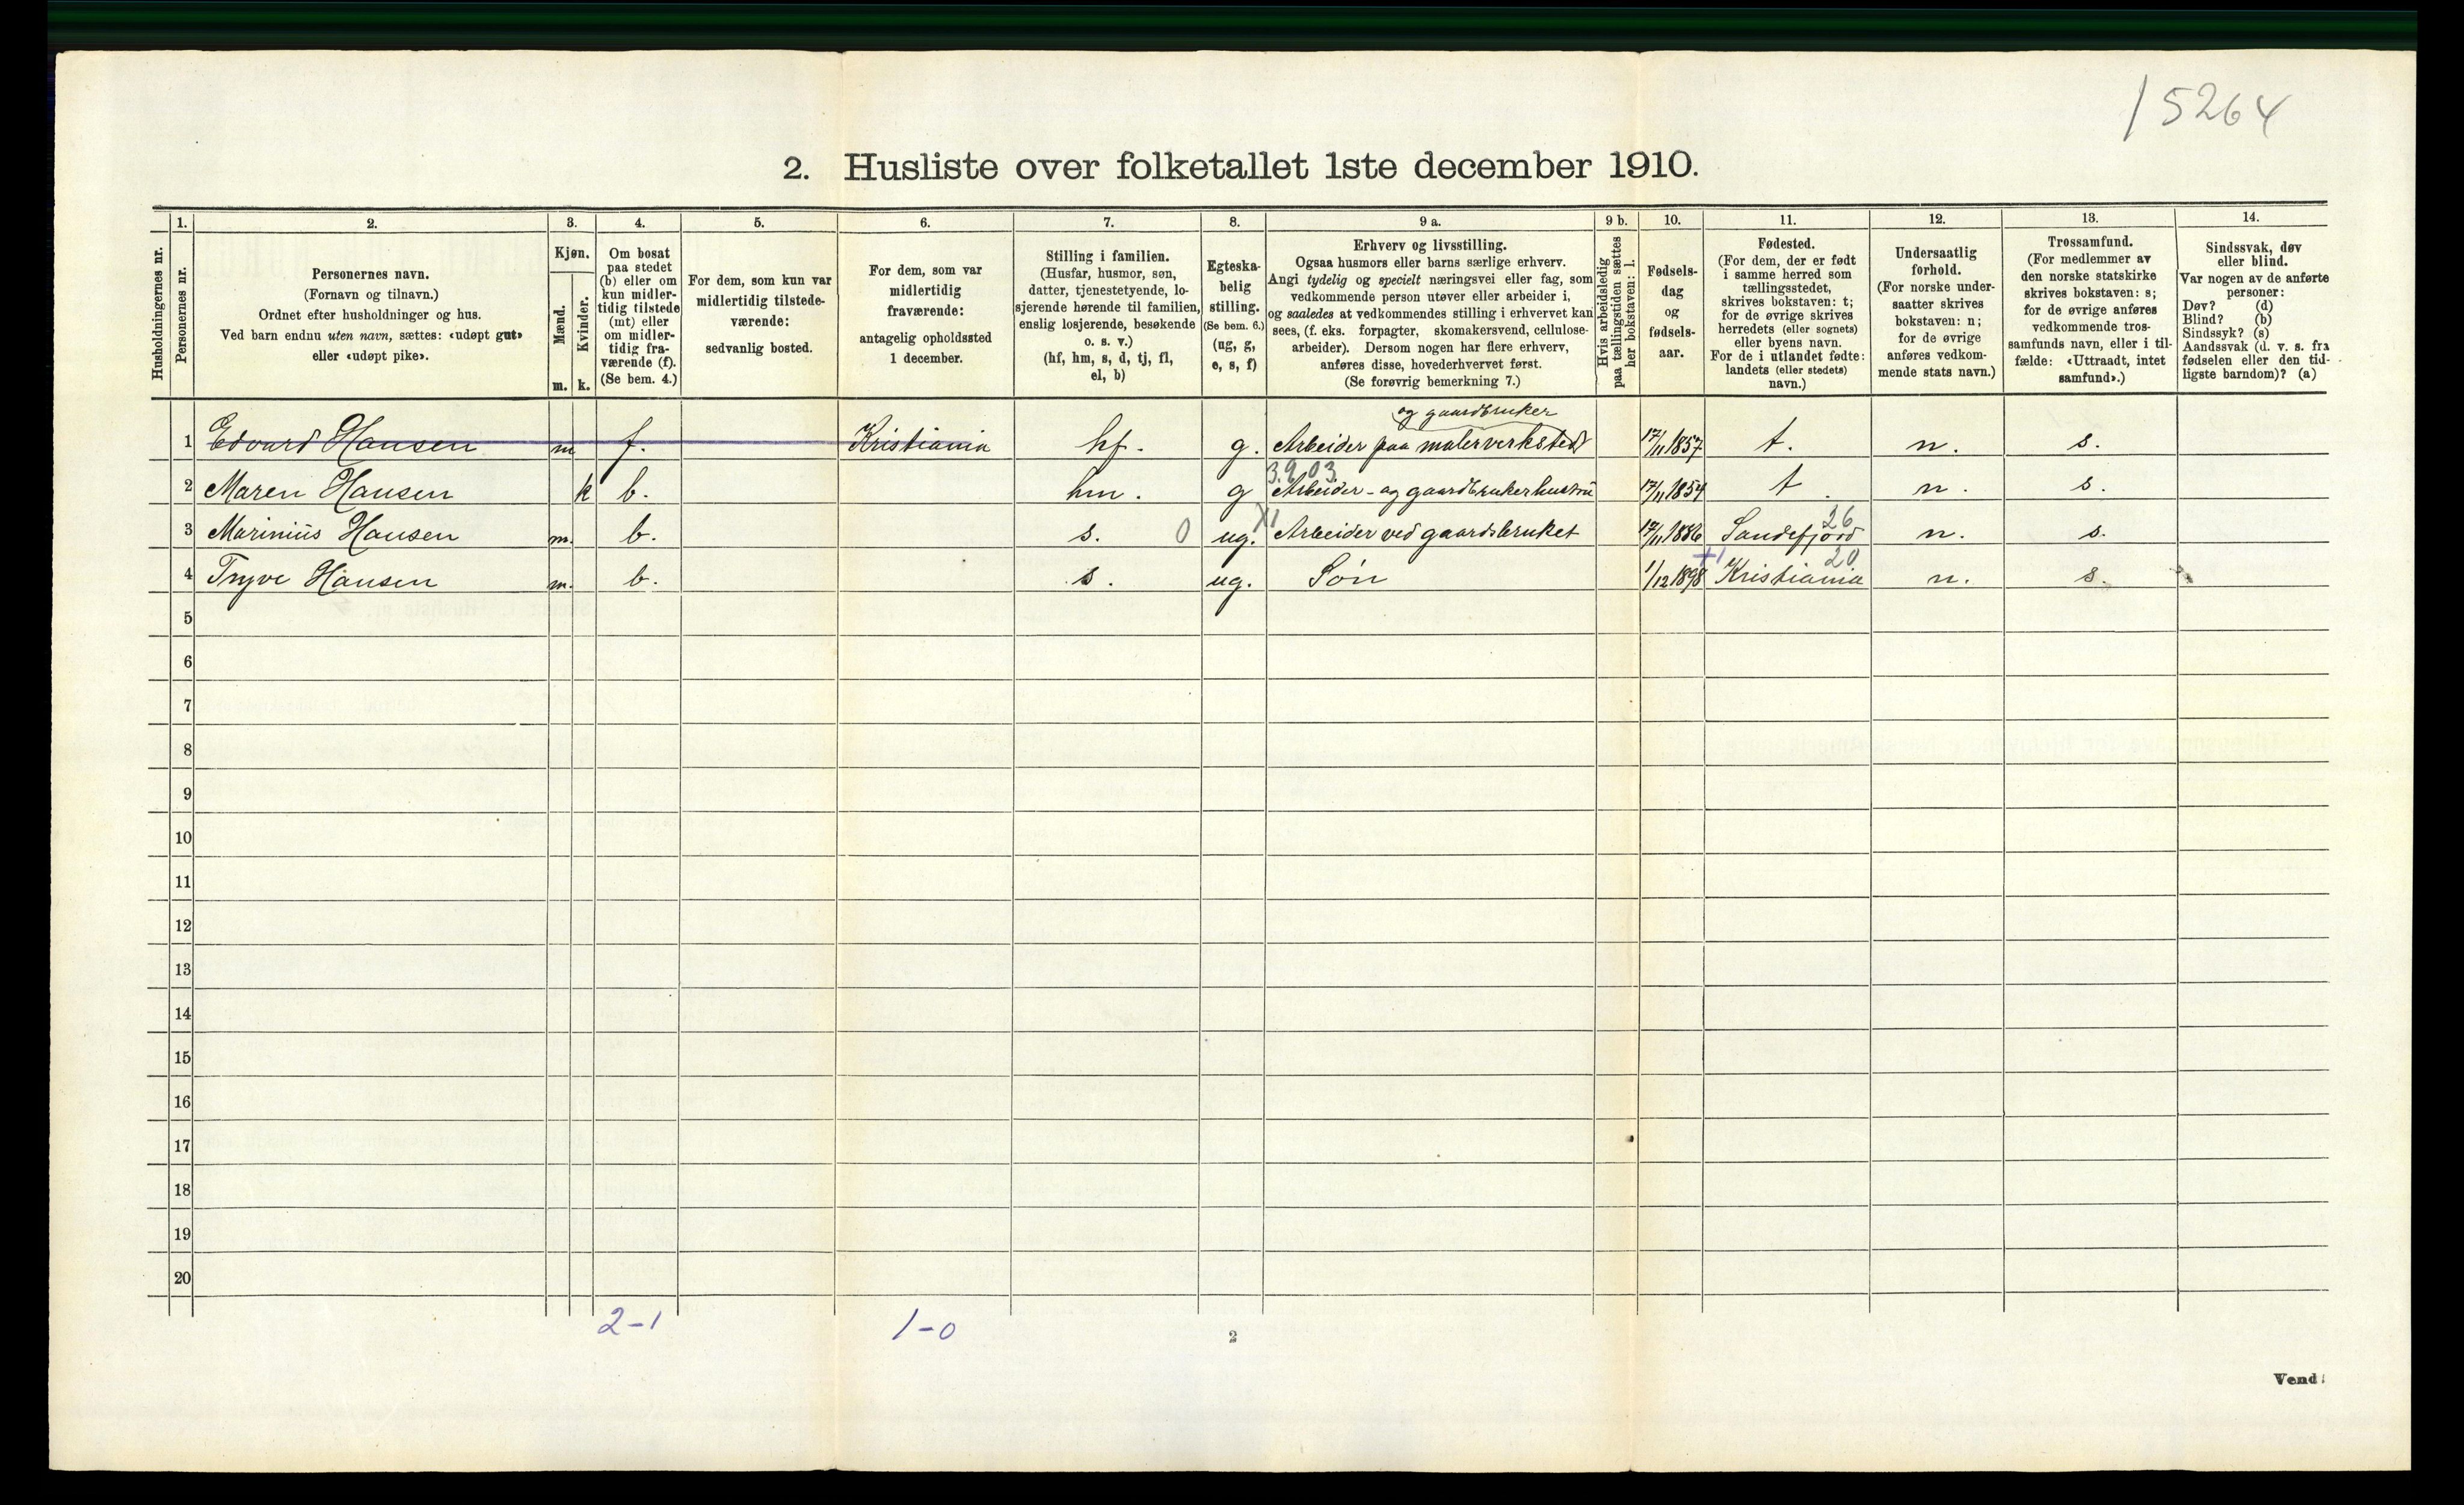 15264
2. Husliste over folketallet 1ste december 1910.
1. 2. 3. 4. 5. 6. 7. 8. 9 a. 9 b. 10. 11. 12. 13. 14.
Husholdningernes nr.
Personernes nr.
Personernes navn.
(Fornavn og tilnavn.)
Ordnet efter husholdninger og hus.
Ved barn endnu uten navn, sættes: «udøpt gut»
eller «udøpt pike».
Kjøn.
Mænd.
m.
Kvinder.
k.
Om bosat
paa stedet
(b) eller om
kun midler-
tidig tilstede
(mt) eller
om midler-
tidig fra-
værende (f).
(Se bem. 4.)
For dem, som kun var
midlertidig tilstede-
værende:
sedvanlig bosted.
For dem, som var
midlertidig
fraværende:
antagelig opholdssted
1 december.
Stilling i familien.
(Husfar, husmor, søn,
datter, tjenestetyende, lo-
sjerende hørende til familien,
enslig losjerende, besøkende
o. s. v.)
(hf, hm, s, d, tj, fl,
el, b)
Egteska-
belig
stilling.
(Se bem. 6.)
(ug, g,
e, s, f)
Erhverv og livsstilling.
Ogsaa husmors eller barns særlige erhverv.
Angi tydelig og specielt næringsvei eller fag, som
vedkommende person utøver eller arbeider i,
og saaledes at vedkommendes stilling i erhvervet kan
sees, (f. eks. forpagter, skomakersvend, cellulose-
arbeider). Dersom nogen har flere erhverv,
anføres disse, hovederhvervet først.
(Se forøvrig bemerkning 7.)
Hvis arbeidsledig
paa tællingstiden sættes
her bokstaven: l.
Fødsels-
dag
og
fødsels-
aar.
Fødested.
(For dem, der er født
i samme herred som
tællingsstedet,
skrives bokstaven: t;
for de øvrige skrives
herredets (eller sognets)
eller byens navn.
For de i utlandet fødte:
landets (eller stedets)
navn.)
Undersaatlig
forhold.
(For norske under-
saatter skrives
bokstaven: n;
for de øvrige
anføres vedkom-
mende stats navn.)
Trossamfund.
(For medlemmer av
den norske statskirke
skrives bokstaven: s;
for de øvrige anføres
vedkommende tros-
samfunds navn, eller i til-
fælde: «Uttraadt, intet
samfund».)
Sindssvak, døv
eller blind.
Var nogen av de anførte
personer:
Døv? (d)
Blind? (b)
Sindssyk? (s)
Aandssvak (d. v. s. fra
fødselen eller den tid-
ligste barndom)? (a)
og gaardbruker
1 Edvard Hansen m f. Kristiania hf. g. Arbeider paa malerverksted 17/11 1857 t. n. s.
3.9.03
2 Maren Hansen k b. hm. g Arbeider- og gaardbrukerhustru 17/11 1854 t. n. s.
X1 26
3 Marinius Hansen m. b. s. 0 ug. Arbeider ved gaardsbruket 17/11 1886 Sandefjord n. s.
+1 20
4 Tryve Hansen m. b. s. ug. Søn 1/12 1898 Kristiania n. s.
5
6
7
8
9
10
11
12
13
14
15
16
17
18
19
20
2-1 1-0
2
Vend!